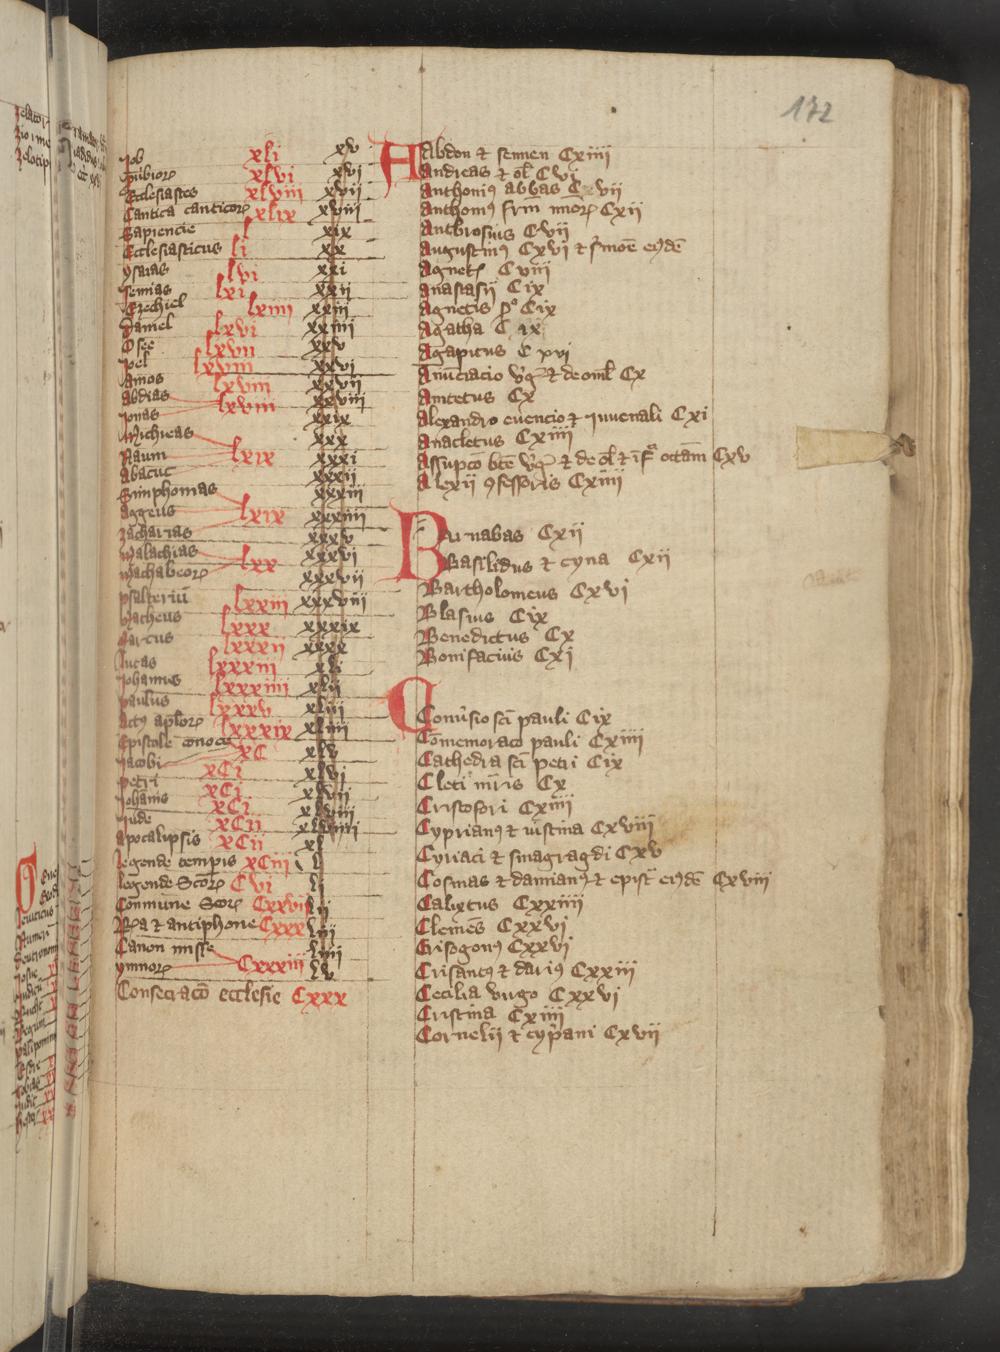 172
Job xli xv
ꝓubiorꝝ xlvi xvi
Ecclesiastes xlviii xvii
Cantica canticorꝝ xlix xviii
Sapiencie l xix
Ecclesiasticus li xx
ysaias lvi xxi
Jemias lxi xxii
Ezechiel lxiiii xxiii
Daniel lxvi xxiiii
Osee lxvii xxv
Joel lxviii xxvi
Amos lxviii xxvii
Abdias lxviii xxviii
Jonas xxix
Micheas xxx
Naum lxix xxxi
Abacuc xxxii
Simphonias xxxiii
Aggeus lxix xxxiiii
Zacharias xxxv
Malachias lxx xxxvi
Machabeorꝝ xxxvii
psalteriū lxxiii xxxviii
Matheus lxxx xxxix
Marcus lxxxii xxxx
lucas lxxxiii xli
Johannes lxxxiiii xlii
paulus lxxxv xliii
Actꝰ aplorꝝ lxxxix xliiii
Epistole xlv
Jacobi xC
petri xCi xlvi
Johānis xCi xlvii
Jude xCii xlviii
Apocalipsis xCii
legende tempis xCiii l
legende Scorꝝ Cvi li
Commune Scorꝝ Cxxvii lii
Rͣa et antiphone Cxxx liii
Canon misse liiii
ymnorꝝ Cxxxiii lv
Consecracō ecclesie Cxxx
Abdon et sennen Cxiiii
Andreas et ol Cvi
Anthoniꝰ abbas Cvii
Anthoniꝰ frm mīorꝝ Cxii
Ambrosius Cvii
Augustinꝰ Cxvi et ẜmoē eiꝰdē
Agnetꝭ Cviii
Anastasii Cix
Agnetis ẜº Cix
Agatha Cix
Agapitus Cxvi
Anūciacio vgͥ et de om̄l Cx
Anicetus Cx
Alexandro euencio et iuuenali Cxi
Anacletus Cxiiii
Assupcō btē vgͥ et de ol et īfͣ octām Cxv
Alexii ꝯfessoris Cxiiii
Barnabas Cxii
Basilidus et cyna Cxii
Bartholomeus Cxvi
Blasius Cix
Benedictus Cx
Bonifacius Cxi
Conuͥsio sci pauli Cix
Cōmemoracō pauli Cxiiii
Cathedra sci petri Cix
Cleti mr̄is Cx
Cristofori Cxiiii
Cyprianꝰ et iustina Cxviii
Cyriaci et smaragdi Cxv
Cosmas et damianꝰ et epistͣ eiꝰdē Cxviii
Calixtus Cxxiiii
Clemēs Cxxvi
Grisogonꝰ Cxxvi
Crisantꝰ et dariꝰ Cxxiii
Cecilia virgo Cxxvi
Cristina Cxiiii
Cornelii et cypͥani Cxvii